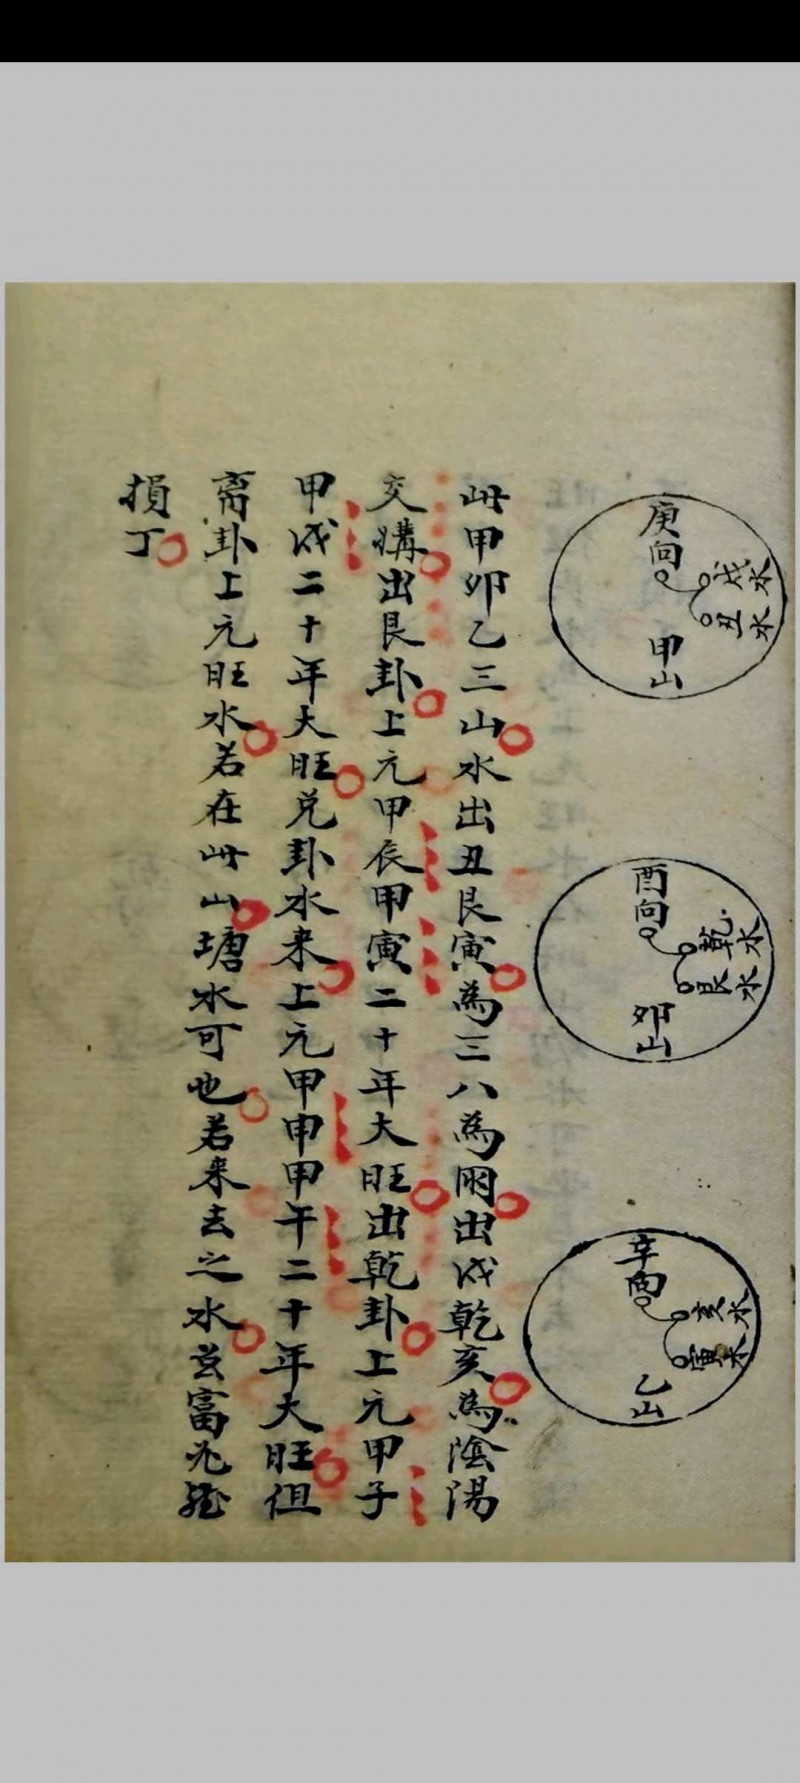 庚向
戌水
丑水
甲山
酉向
乾水
艮水
卯山
辛向
亥水
寅水
乙山
此甲卯乙三山水出丑艮寅為三八為朋出戌乾亥為陰陽
交媾出艮卦上元甲辰甲寅二十年大旺出乾卦上元甲子
甲戌二十年大旺兌卦水来上元甲申甲午二十年大旺但
离卦上元旺水若在此山塘水可也若来去之水玄富
損丁